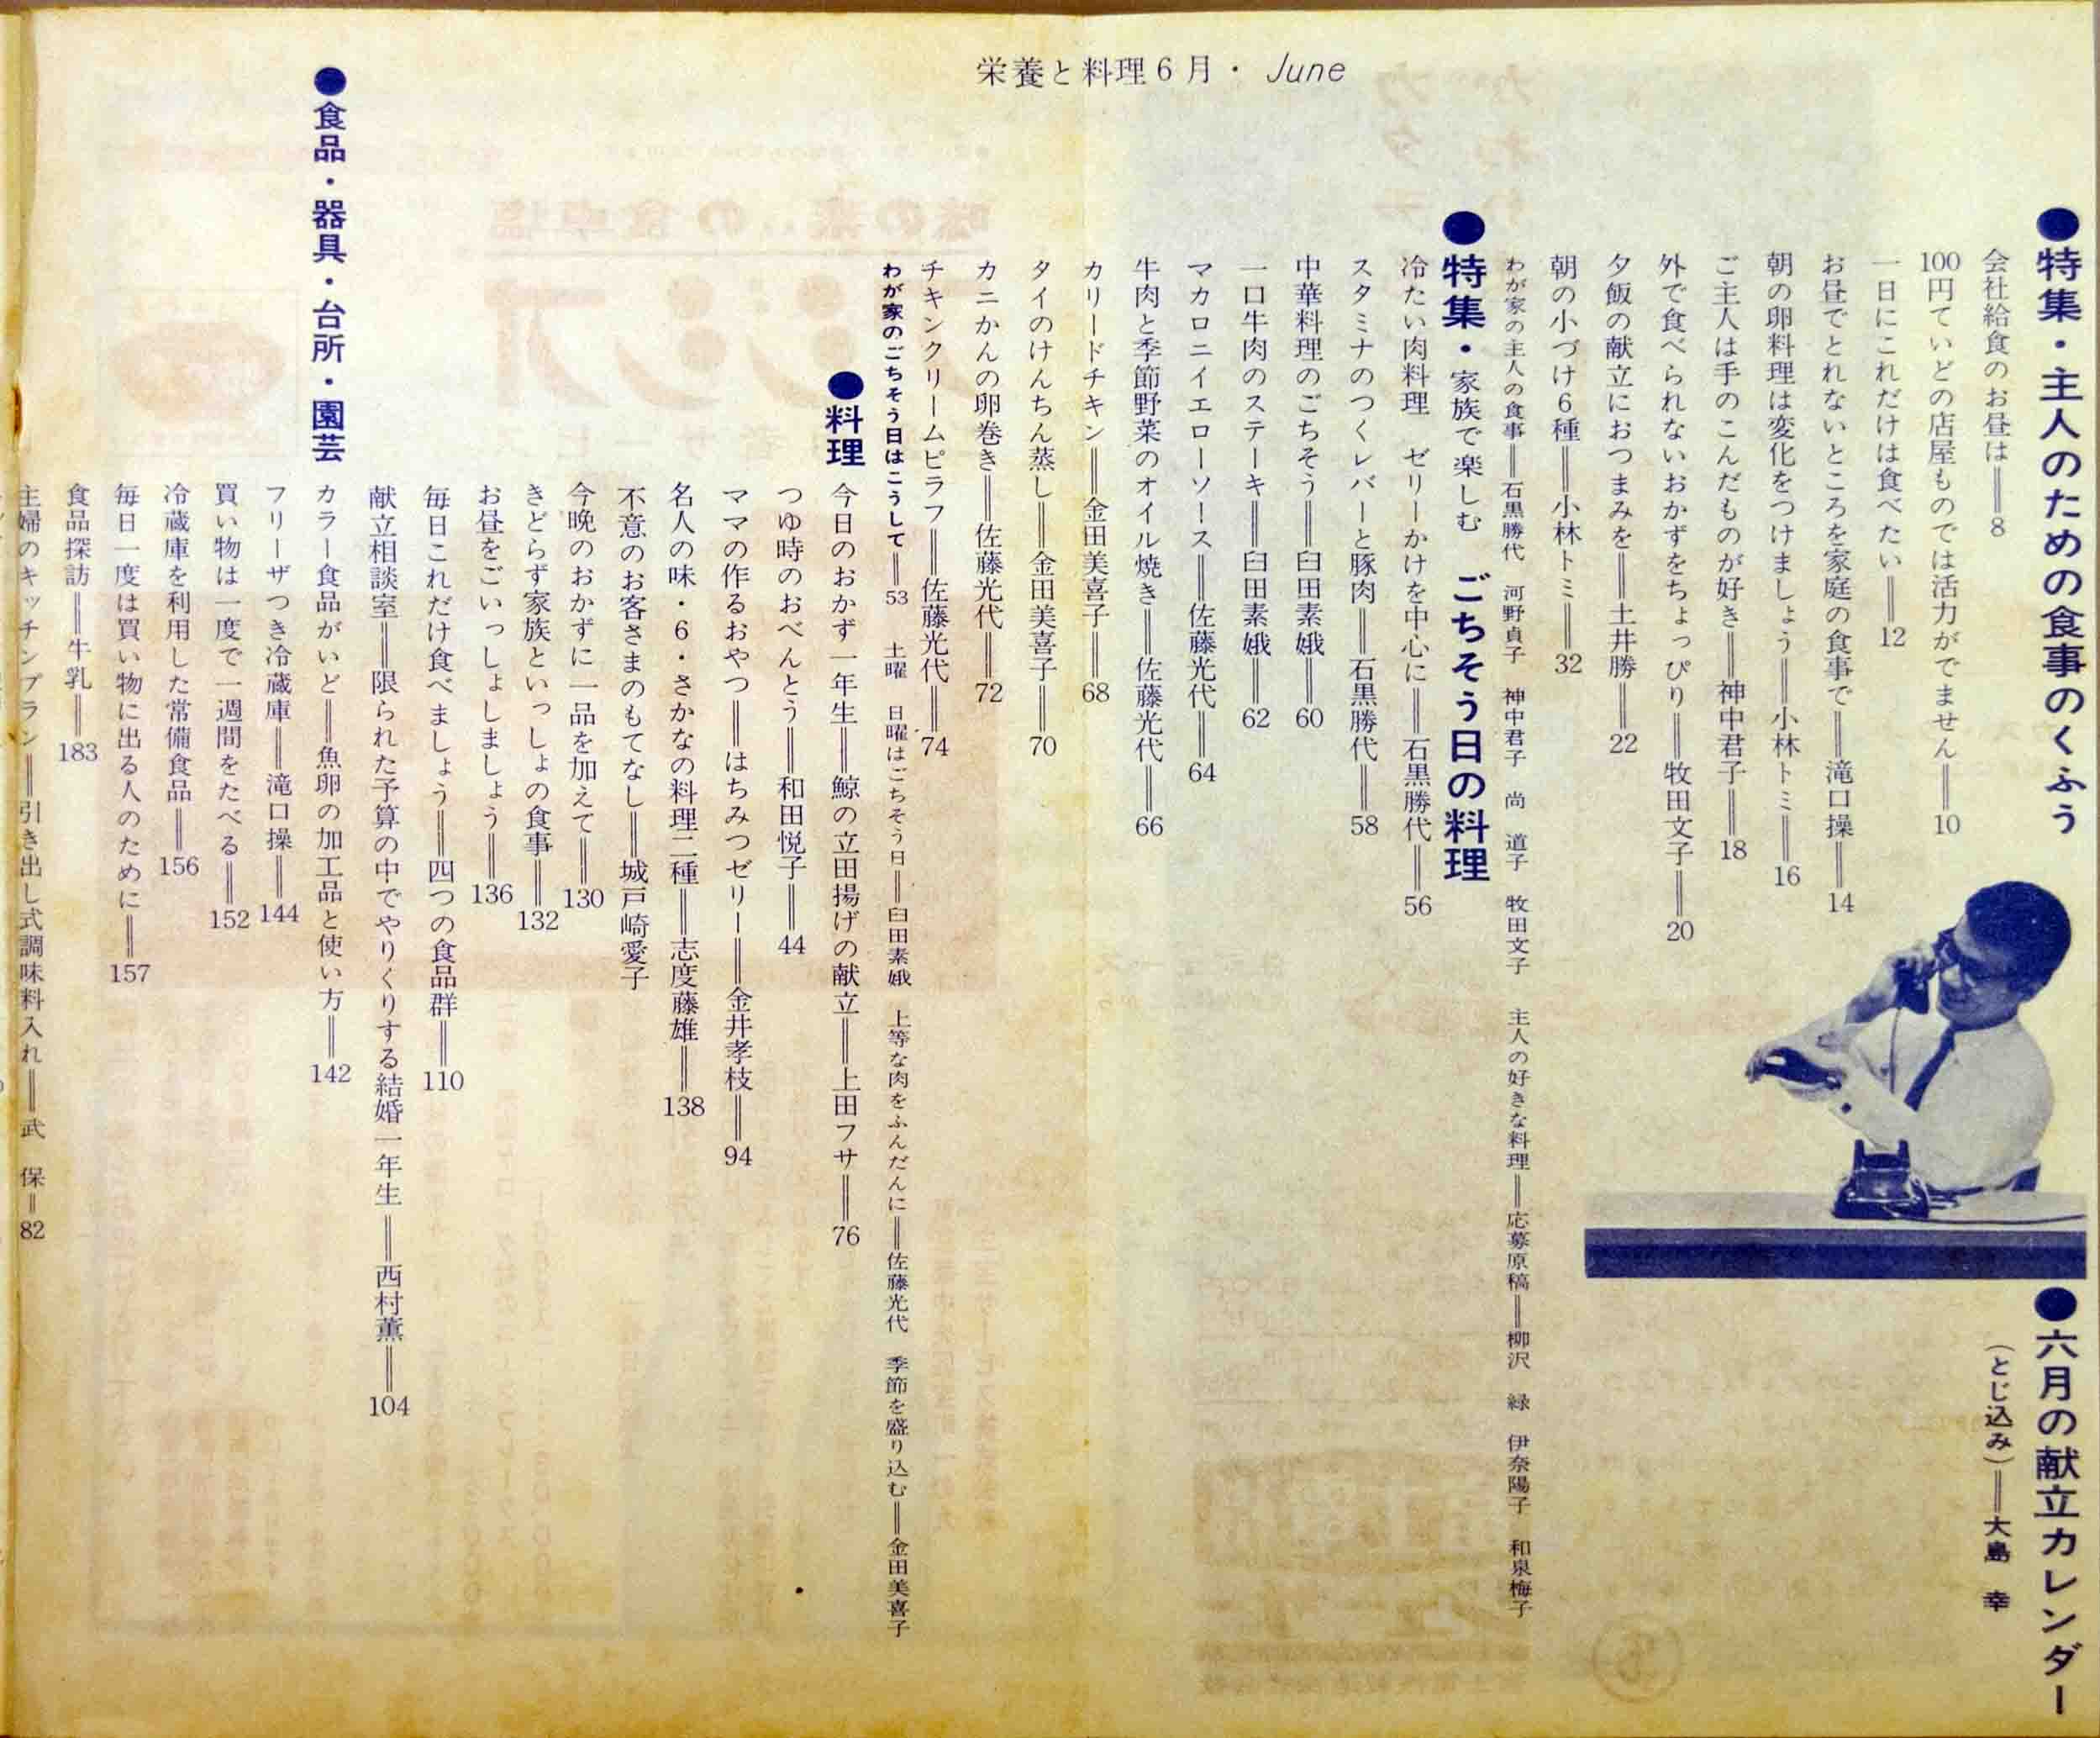 栄養と料理6月・June
●特集・主人のための食事のくふう
会社給食のお昼は＝8
100円ていどの店屋ものでは活力がでません＝10
一日にこれだけは食べたい＝12
お昼でとれないところを家庭の食事で＝滝口操＝14
朝の卵料理は変化をつけましょう＝小林トミ＝16
ご主人は手のこんだものが好き＝神中君子＝18
外で食べられないおかずをちょっぴり＝牧田文子＝20
夕飯の献立におつまみを＝土井勝＝22
朝の小づけ6種＝小林トミ＝32
わが家の主人の食事＝石黒勝代 河野貞子 神中君子 尚 道子 牧田文子 主人の好きな料理＝応募原稿＝柳沢 緑 伊奈陽子 和泉梅子
●六月の献立カレンダー
（とじ込み）＝大島 幸
●特集・家族で楽しむ ごちそう日の料理
冷たい肉料理 ゼリーかけを中心に＝石黒勝代＝56
スタミナのつくレバーと豚肉＝石黒勝代＝58
中華料理のごちそう＝臼田素娥＝60
一口牛肉のステーキ＝臼田素娥＝62
マカロニイエローソース＝佐藤光代＝64
牛肉と季節野菜のオイル焼き＝佐藤光代＝66
カリードチキン＝金田美喜子＝68
タイのけんちん蒸し＝金田美喜子＝70
カニかんの卵巻き＝佐藤光代＝72
チキンクリームピラフ＝佐藤光代＝74
わが家のごちそう日はこうして＝53 土曜 日曜はごちそう日＝臼田素娥 上等な肉をふんだんに＝佐藤光代 季節を盛り込む＝金田美喜子
●料理
今日のおかず一年生＝鯨の立田揚げの献立＝上田フサ＝76
つゆ時のおべんとう＝和田悦子＝44
ママの作るおやつ＝はちみつゼリー＝金井孝枝＝94
名人の味・6・さかなの料理二種＝志度藤雄＝138
不意のお客さまのもてなし＝城戸崎愛子
今晩のおかずに一品を加えて＝130
きどらず家族といっしょの食事＝132
お昼をごいっしょしましょう＝136
毎日これだけ食べましょう＝四つの食品群＝110
献立相談室＝限られた予算の中でやりくりする結婚一年生＝西村薫＝104
●食品・器具・台所・園芸
カラー食品がいど＝魚卵の加工品と使い方＝142
フリーザつき冷蔵庫＝滝口操＝144
買い物は一度で一週間をたべる＝152
冷蔵庫を利用した常備食品＝156
毎日一度は買い物に出る人のために＝157
食品探訪＝牛乳＝183
主婦のキッチンプラン＝引き出し式調味料入れ＝武 保＝82